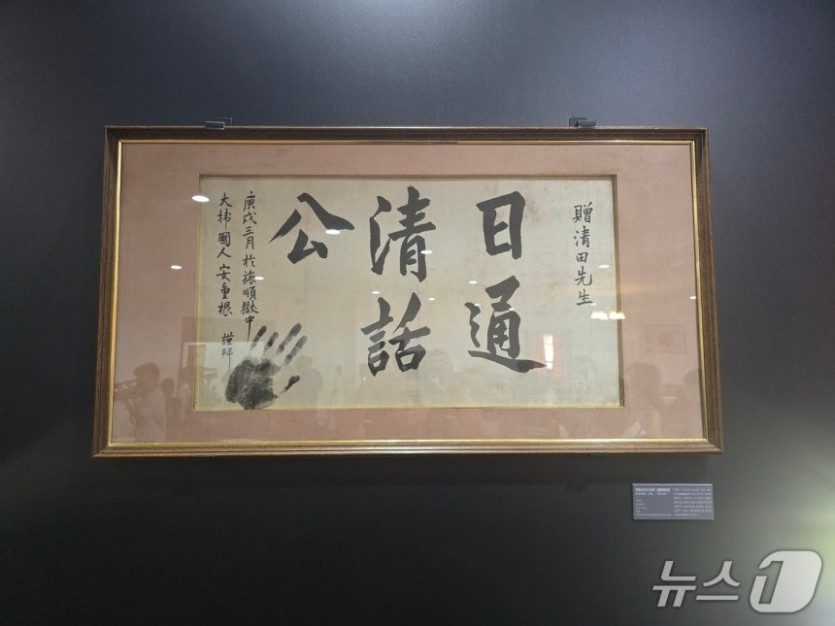 贈淸田先生
日通
淸話
公
庚戌三月 於旅順獄中
大韓國人 安重根 謹拜
뉴스1